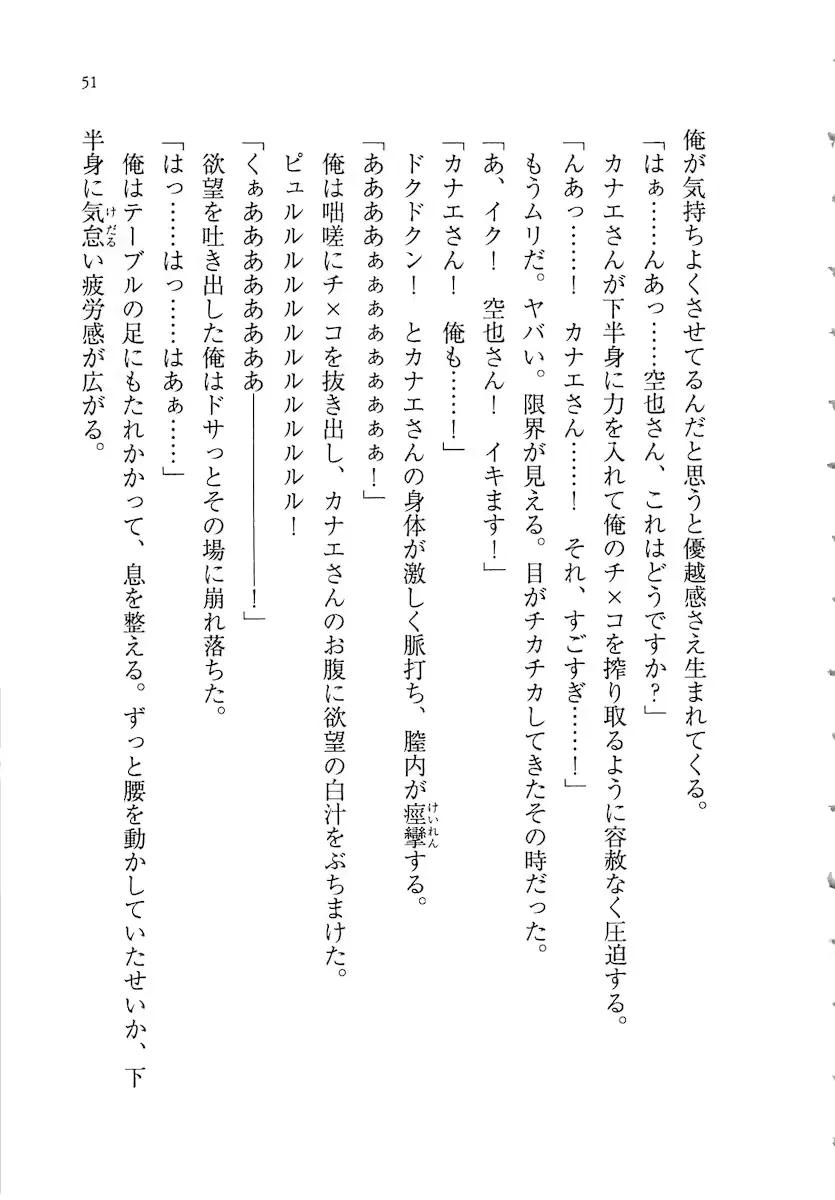 51
俺が気持ちよくさせてるんだと思うと優越感さえ生まれてくる。
「はぁ……んあっ……空也さん、これはどうですか？」
カナエさんが下半身に力を入れて俺のチ×コを搾り取るように容赦なく圧迫する。
「んあっ……！　カナエさん……！　それ、すごすぎ……！」
もうムリだ。ヤバい。限界が見える。目がチカチカしてきたその時だった。
「あ、イク！　空也さん！　イキます！」
「カナエさん！　俺も……！」
ドクドクン！　とカナエさんの身体が激しく脈打ち、膣内が痙攣する。
「ああああぁぁぁぁぁぁぁぁ！」
俺は咄嗟にチ×コを抜き出し、カナエさんのお腹に欲望の白汁をぶちまけた。
ピュルルルルルルルルルルルルルル！
「くぁああああああああ――――――！」
欲望を吐き出した俺はドサっとその場に崩れ落ちた。
「はっ……はっ……はあぁ……」
俺はテーブルの足にもたれかかって、息を整える。ずっと腰を動かしていたせいか、下
半身に気怠い疲労感が広がる。